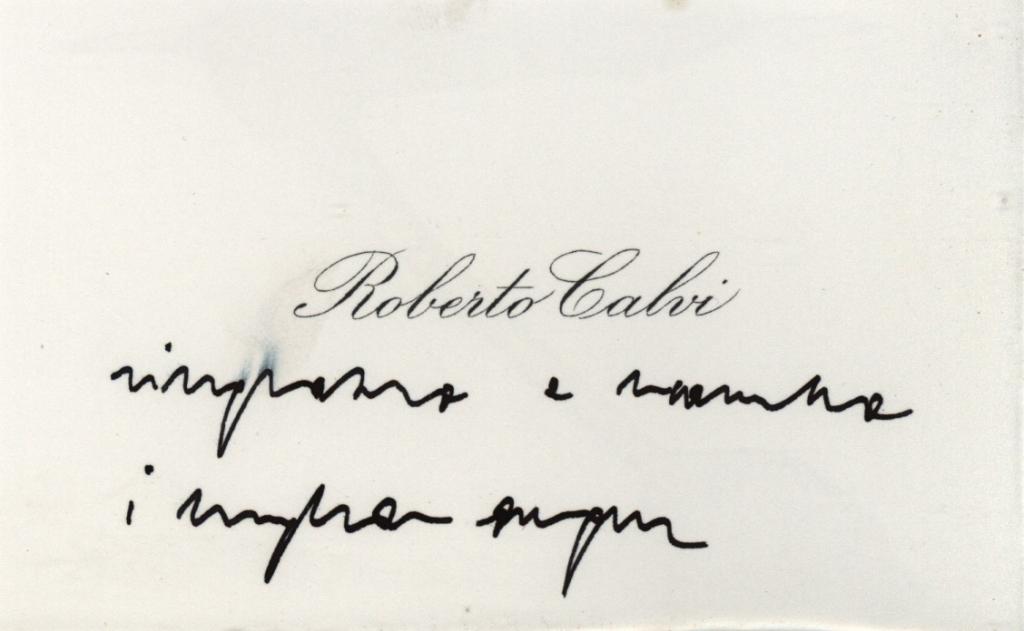 Roberto Calvi
ringrazia e ricambia
i migliori auguri